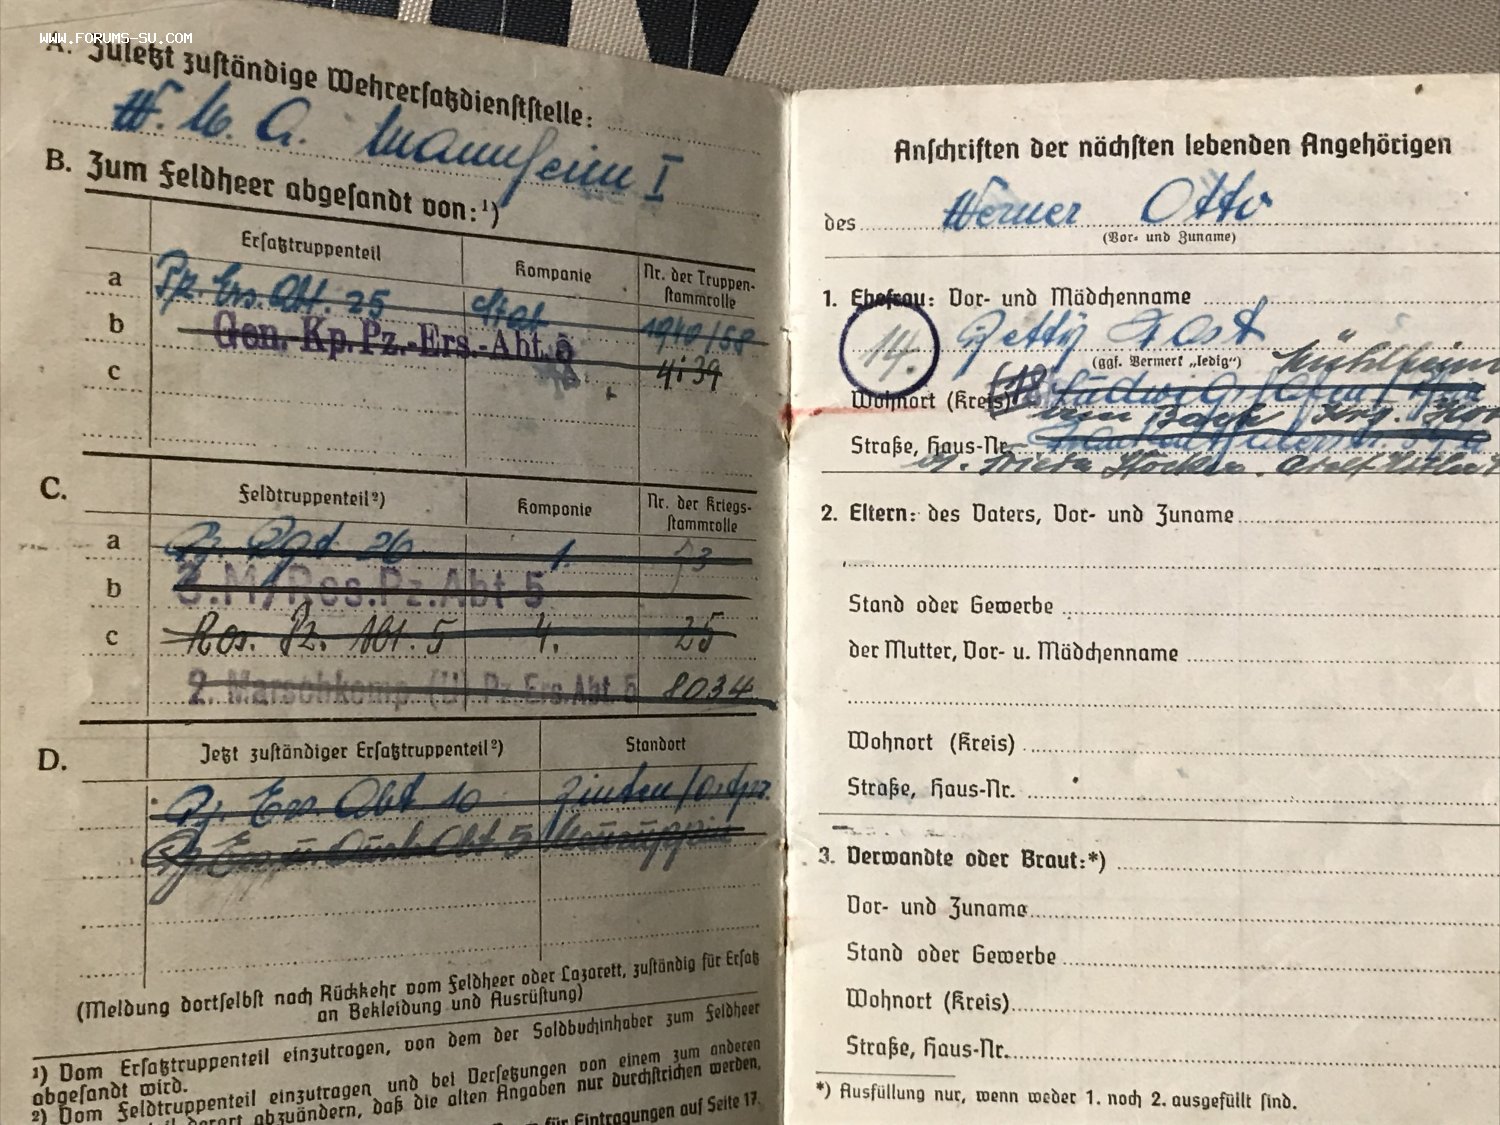 WWW.FORUMS-SU.COM
A. Zuletzt zuständige Wehrersatzdienststelle:
W. M. A. Mannheim I
B. Zum Feldheer abgesandt von:¹)
Ersatztruppenteil Kompanie Nr. der Truppen-
stammrolle
a Pz. Ers. Abt. 25 Stab 1940/58
b Gen. Kp. Pz.-Ers.-Abt. 5 4139
c
C. Feldtruppenteil²) Kompanie Nr. der Kriegs-
stammrolle
a Pz. Rgt 26 1. 73
b Res. Pz. Abt 5
c Res. Pz. Abt. 5 4. 25
2. Marschkomp. (U) Pz. Ers. Abt. 5 8034
D. Jetzt zuständiger Ersatztruppenteil²) Standort
Pz. Ers. Abt 10 Zinten/Ostpr.
Pz Ers. u. Ausb. Abt 5 Neuruppin
(Meldung dortselbst nach Rückkehr vom Feldheer oder Lazarett, zuständig für Ersatz
an Bekleidung und Ausrüstung)
¹) Vom Ersatztruppenteil einzutragen, von dem der Soldbuchinhaber zum Feldheer
abgesandt wird.
²) Vom Feldtruppenteil einzutragen und bei Versetzungen von einem zum anderen
derart abzuändern, daß die alten Angaben nur durchstrichen werden,
für Eintragungen auf Seite 17.
Anschriften der nächsten lebenden Angehörigen
des Werner Otto
(Vor- und Zuname)
1. Ehefrau: Vor- und Mädchenname
14. Betty
(ggf. Vermerk „ledig“) Mühlheim
Wohnort (Kreis)
Straße, Haus-Nr.
2. Eltern: des Vaters, Vor- und Zuname
Stand oder Gewerbe
der Mutter, Vor- u. Mädchenname
Wohnort (Kreis)
Straße, Haus-Nr.
3. Verwandte oder Braut:*)
Vor- und Zuname
Stand oder Gewerbe
Wohnort (Kreis)
Straße, Haus-Nr.
*) Ausfüllung nur, wenn weder 1. noch 2. ausgefüllt sind.